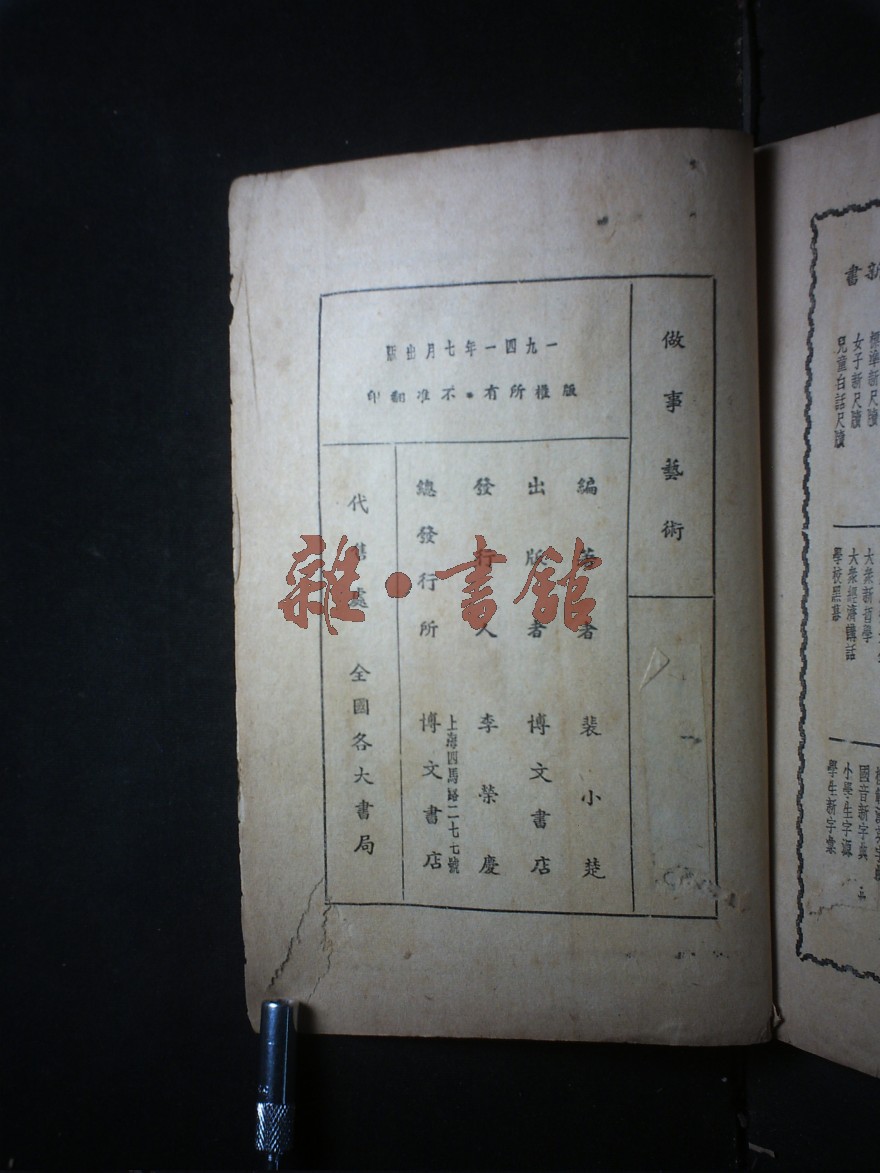 做事藝術
一九四一年七月出版
版權所有·不准翻印
編著者 裴小楚
出版者 博文書店
發行人 李榮慶
上海四馬路二七七號
總發行所 博文書店
代售處 全國各大書局
雜·書館
新書
標準新尺牘
女子新尺牘
兒童白話尺牘
大眾新哲學
大眾經濟講話
學校照
國音新字典
小學生字源
學生新字彙